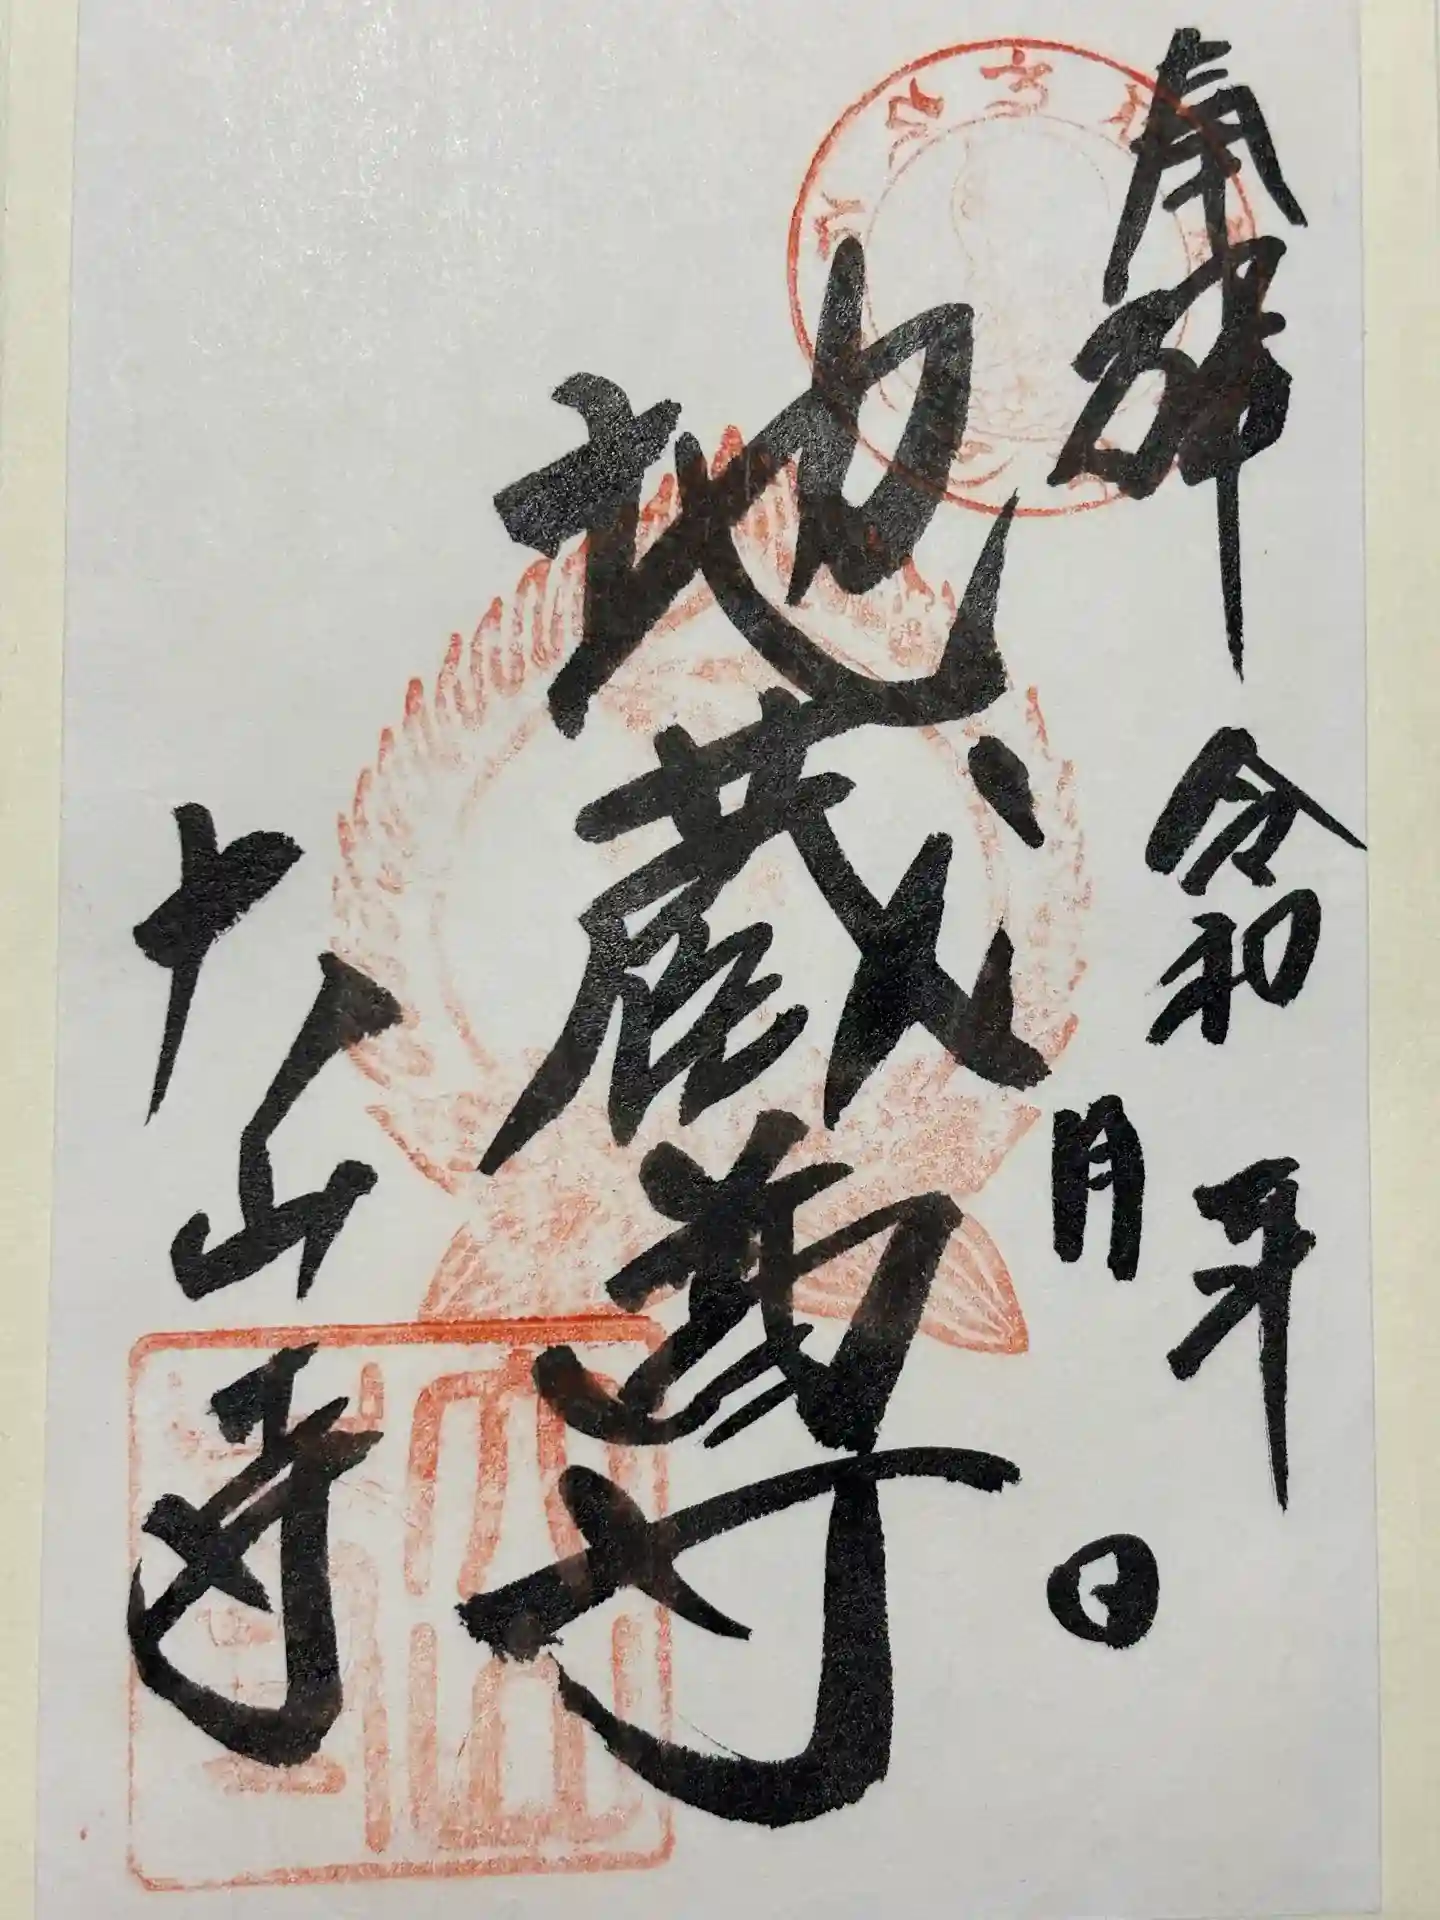 奉拝
令和 年
月 日
地蔵尊
大山寺